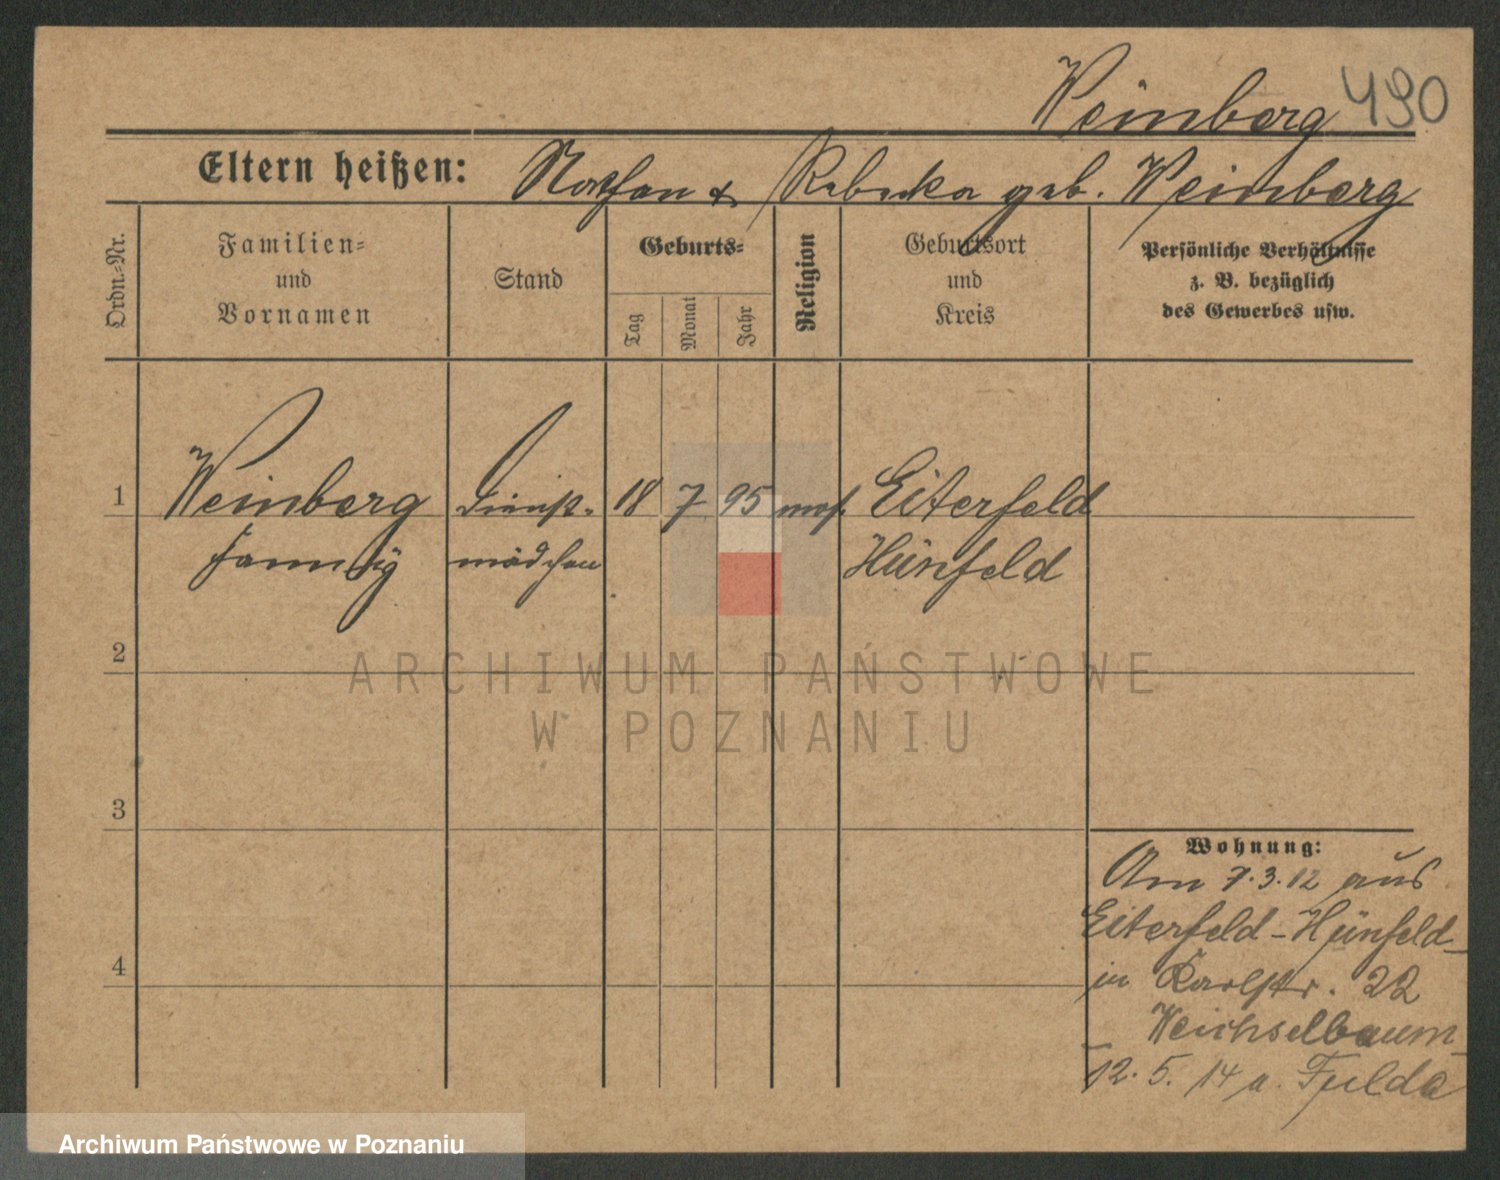 Weinberg 490
Eltern heißen: Nathan & Rebecka geb. Weinberg
Ordn.-Nr.
Familien-
und
Vornamen
Stand
Geburts-
Tag
Monat
Jahr
Religion
Geburtsort
und
Kreis
Persönliche Verhältnisse
z. B. bezüglich
des Gewerbes usw.
1 Weinberg Dienst- 18 7 95 mos. Eiterfeld
Fanny mädchen Hünfeld
2
3
4
Wohnung:
Am 7.3.12 aus
Eiterfeld-Hünfeld
in Karlstr. 22
Weichselbaum
12. 5. 14 n. Fulda
ARCHIWUM PAŃSTWOWE
W POZNANIU
Archiwum Państwowe w Poznaniu